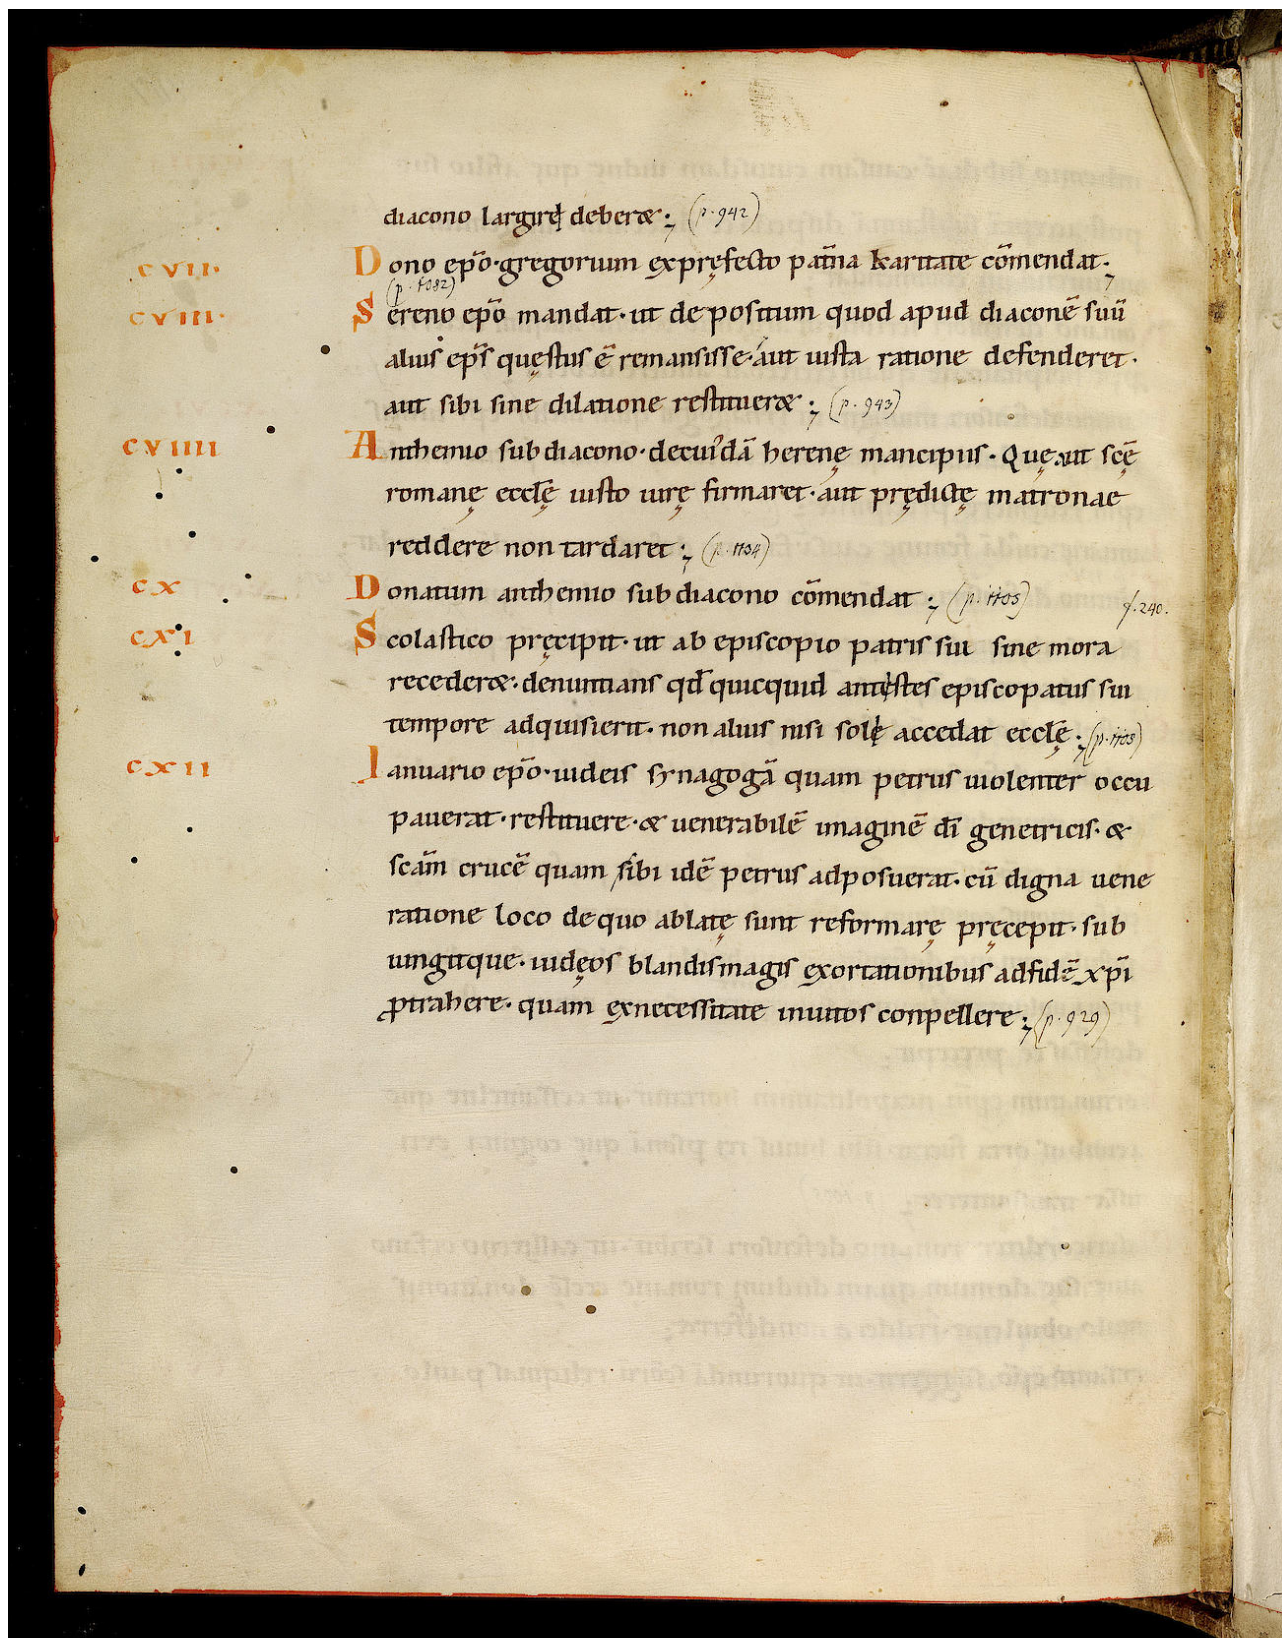 diacono largirę deberæ ; (p. 942)
CVII. Dono ep̄o. gregorium expręfecto pat̄na karitate cōmendat ;
(p. 1082)
CVIII. Sereno ep̄o mandat. ut depositum quod apud diaconē suū
alius ep̄s quęstus ē remansisse. aut iusta ratione defenderet.
aut sibi sine dilatione restitueræ ; (p. 943)
CVIIII Anthemio subdiacono. de cuidā herenę mancipiis. Quę aut scę̄
romanę eccłę iusto iurę firmaret. aut prędictę matronae
reddere non tardaret ; (p. 1104)
CX Donatum anthemio subdiacono cōmendat ; (p. 1105) f. 240.
CXI Scolastico pręcipit. ut ab episcopio patris sui sine mora
recederæ. denuntians qđ quicquid antestes episcopatus sui
tempore adquisierit. non alius nisi sole accedat eccłę ; (p. 1105)
CXII Ianuario ep̄o. iudeis synagogā quam petrus uiolenter occu
pauerat. restituere. & uenerabilē imaginē dī genetricis. &
scām crucē quam sibi idē petrus adposuerat. cū digna uene
ratione loco de quo ablatę sunt reformarę pręcepit. sub
iungitque. iudęos blandis magis exortationibus ad fidē xp̄i
ꝓtrahere. quam ex necessitate inuitos conpellere ; (p. 929)